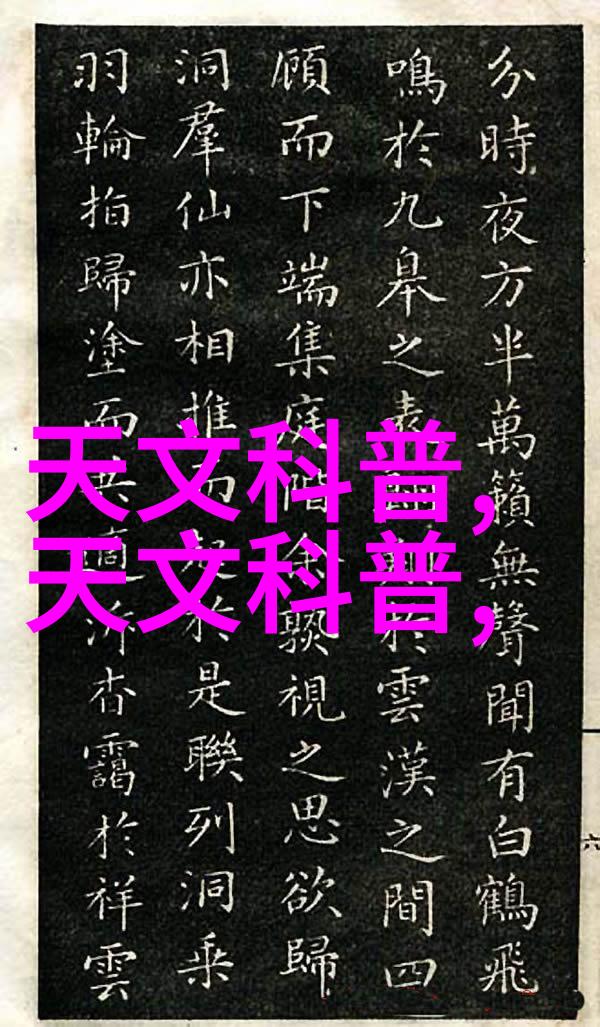 分時夜方半萬籟無聲聞有白鶴飛
鳴於九皋之表於雲漢之間四
顧而下端集庭階余聚視之思欲歸
洞羣仙亦相推而於是聯列洞乘
羽輪拍歸塗而共適泝杳靄於祥雲
天文科普,
天文科普,
六